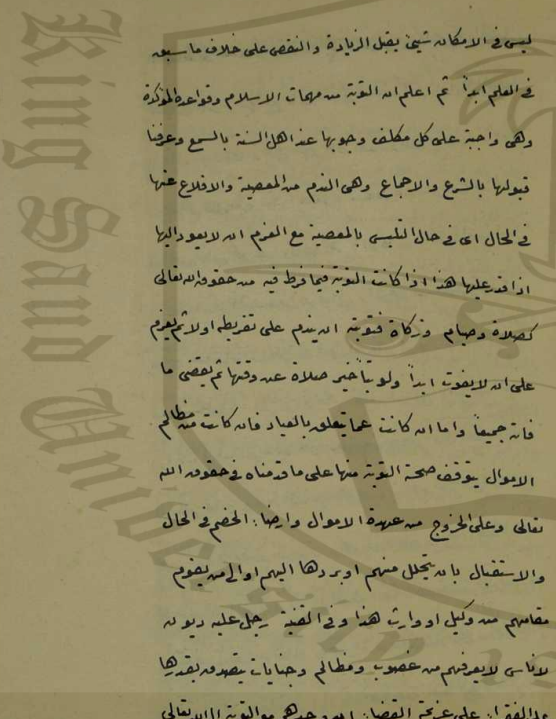 ليس في الامكان شيئ يقبل الزيادة والنقص على خلاف ما سبق
في العلم ابداً ثم اعلم ان التوبة من مهمات الاسلام وقواعده المؤكدة
وهى واجبة على كل مكلف وجوبها عند اهل السنة بالسمع وعرفنا
قبولها بالشرع والاجماع وهى الندم من المعصية والاقلاع عنها
في الحال اى في حال التلبس بالمعصية مع العزم ان لا يعود اليها
اذا قدر عليها هذا اذا كانت التوبة فيما فرط فيه من حقوق الله تعالى
كصلاة وصيام وزكاة فتوبته ان يندم على تفريطه اولا ثم يعزم
على ان لا يفوت ابداً ولو بتأخير صلاة عن وقتها ثم يقضى ما
فاته جميعاً واما ان كانت عما يتعلق بالعباد فان كانت من مظالم
الاموال يتوقف صحة التوبة منها على ما قدمناه في حقوق الله
تعالى وعلى الخروج من عهدة الاموال وارضاء الخصم في الحال
والاستقبال بان يتحلل منهم او يردها اليهم او الى من يقوم
مقامهم من وكيل او وارث هذا وفي القنية رجل عليه ديون
لاناس لا يعرفهم من غصوب ومظالم وجنايات يتصدق بقدرها
على عزيمة القضاء ان وجدهم مع التوبة الى الله تعالى
King Saud University